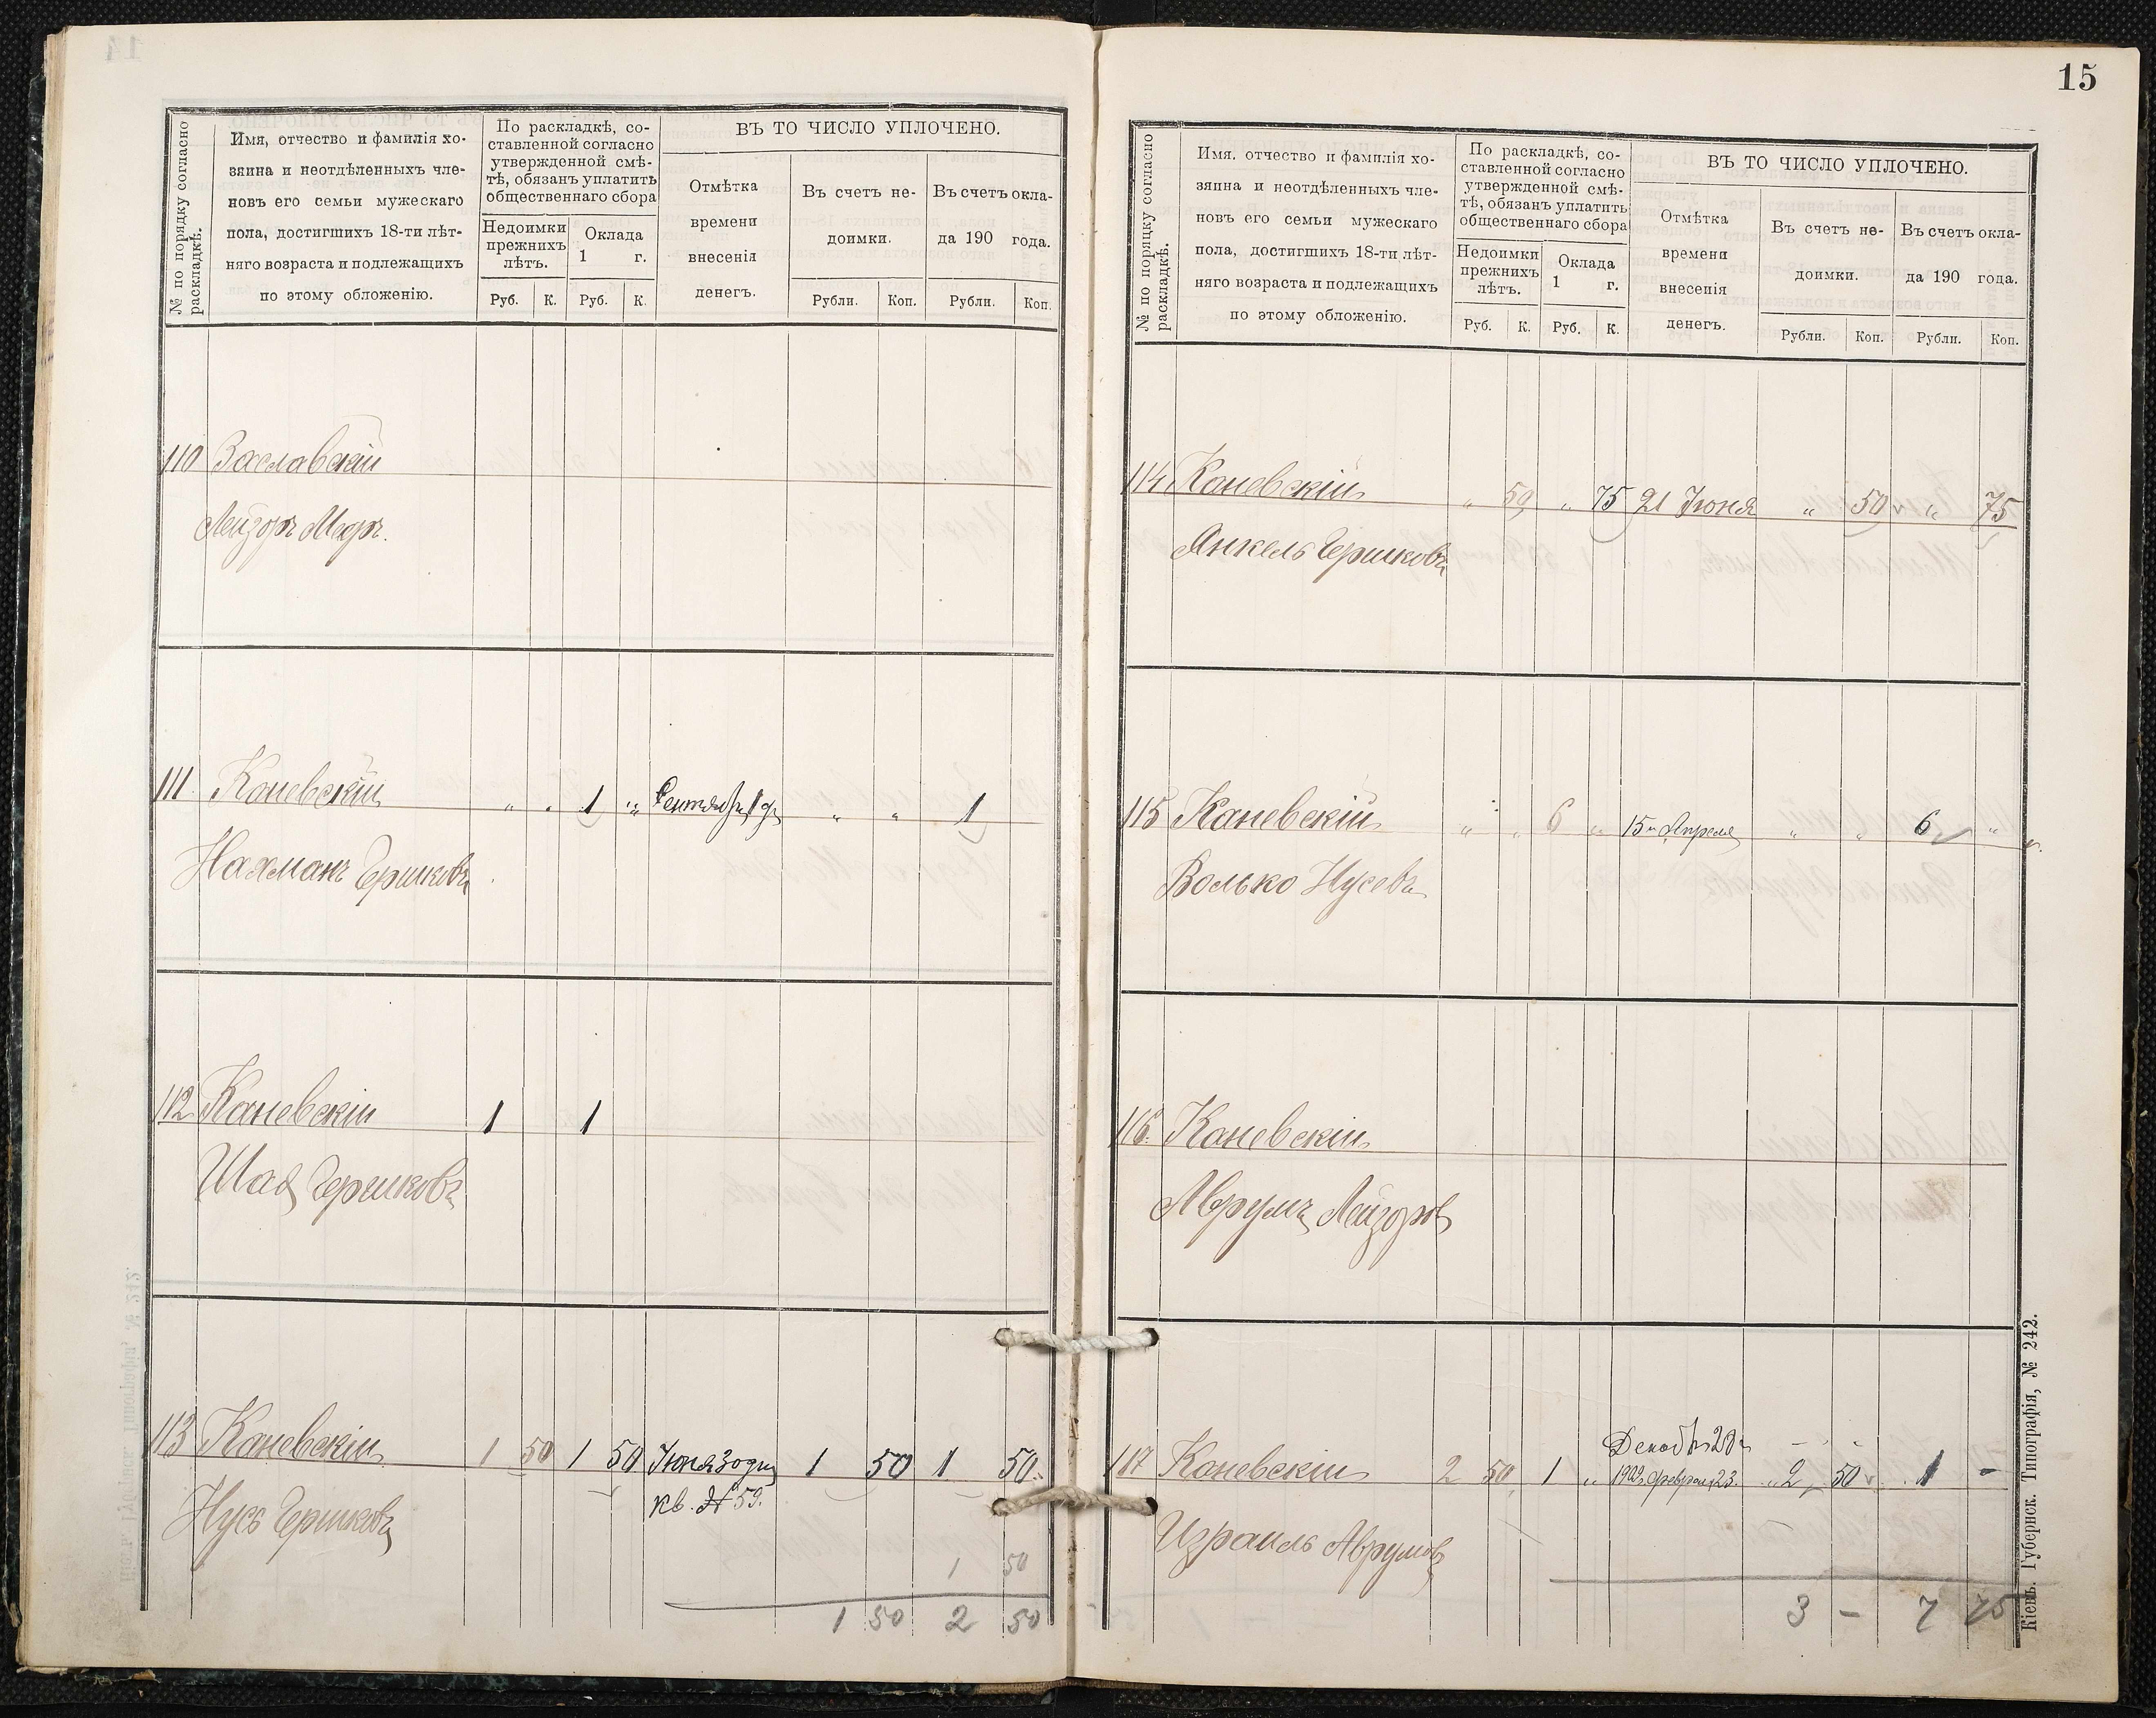 № по порядку согласно
раскладкѣ.
Имя, отчество и фамилія хо-
зяина и неотдѣленныхъ чле-
новъ его семьи мужескаго
пола, достигшихъ 18-ти лѣт-
няго возраста и подлежащихъ
по этому обложенію.
По раскладкѣ, со-
ставленной согласно
утвержденной смѣ-
тѣ, обязанъ уплатить
общественнаго сбора
Недоимки
прежнихъ
лѣтъ.
Оклада
1 г.
Руб. К. Руб. К.
ВЪ ТО ЧИСЛО УПЛОЧЕНО.
Отмѣтка
времени
внесенія
денегъ.
Въ счетъ не-
доимки.
Въ счетъ окла-
да 190 года.
Рубли. Коп. Рубли. Коп.
110 Заславскій
Лейзоръ Мор.
111 Каневскій „ „ 1 „ Сентября 1 дн „ „ 1
Нахманъ Гершковъ
112 Каневскій 1 1
Шая Гершковъ
113 Каневскій 1 50 1 50 Іюня 3 одн 1 50 1 50
кв. № 59.
Нусь Гершковъ
1 50
1 50 2 50
15
№ по порядку согласно
раскладкѣ.
Имя, отчество и фамилія хо-
зяина и неотдѣленныхъ чле-
новъ его семьи мужескаго
пола, достигшихъ 18-ти лѣт-
няго возраста и подлежащихъ
по этому обложенію.
По раскладкѣ, со-
ставленной согласно
утвержденной смѣ-
тѣ, обязанъ уплатить
общественнаго сбора
Недоимки
прежнихъ
лѣтъ.
Оклада
1 г.
Руб. К. Руб. К.
ВЪ ТО ЧИСЛО УПЛОЧЕНО.
Отмѣтка
времени
внесенія
денегъ.
Въ счетъ не-
доимки.
Въ счетъ окла-
да 190 года.
Рубли. Коп. Рубли. Коп.
114 Каневскій „ 50 „ 75 21 Іюня „ 50 „ 75
Янкель Гершковъ
115 Каневскій „ „ 6 „ 15 Апреля „ „ 6 „
Волько Нусевъ
116 Каневскій
Аврумъ Лейзоров
Декабр 28
117 Каневскій 2 50 1 „ 1902 Февраля 23. „ 2 50 1 -
Израиль Аврумов
3 - 7 75
Кіевъ. Губернск. Типографія, № 242.